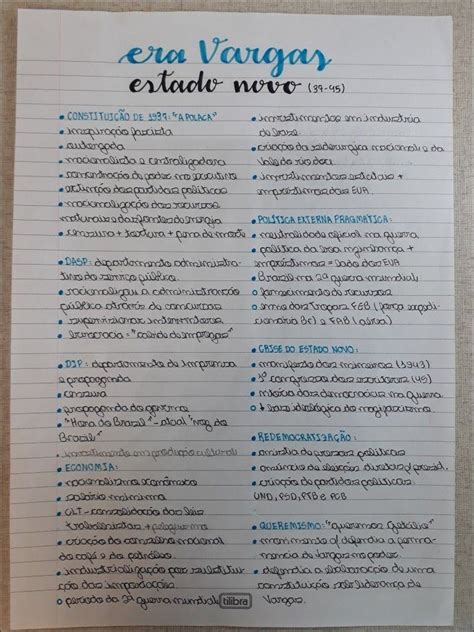 era Vargas
estado novo (37-45)
• CONSTITUIÇÃO DE 1937: "A POLACA"
• inspiração fascista
• outorgada
• nacionalista e centralizadora
• concentração de poder no executivo
• extinção dos partidos políticos
• nacionalização dos recursos
naturais e das fontes de energia
• censura + tortura + pena de morte
• DASP: departamento administra-
tivo do serviço público.
• racionalizou a administração
pública através de concursos
• supervisionar interventores
• burocracia = "cabide de empregos"
• DIP: departamento de imprensa
e propaganda
• censura
• propaganda do governo
• "Hora do Brasil" - atual "voz do
Brasil"
• investimento em produção cultural
• ECONOMIA:
• nacionalismo econômico
• salário mínimo
• CLT - consolidação das leis
trabalhistas +
• criação do conselho nacional
do café e do petróleo.
• industrialização por substitui-
ção das importações
• período da 2ª guerra mundial
tilibra
• investimentos em indústria
de base
• criação da siderurgia nacional e da
Vale do rio doce
• investimentos estatais +
empréstimos dos EUA.
• POLÍTICA EXTERNA PRAGMÁTICA:
• neutralidade oficial na guerra
• política da boa vizinhança +
empréstimos = lado dos EUA
• Brasil na 2ª guerra mundial:
• fornecimento de recursos
• envio das tropas FEB (força expedi-
cionária Br) e FAB (aérea)
• CRISE DO ESTADO NOVO:
• manifesto dos mineiros (1943)
• 1º congresso dos escritores (45)
• vitória das democracias na guerra
• base ideológica do nazifascismo
• REDEMOCRATIZAÇÃO:
• anistia de presos políticos
• anúncio de eleições diretas p/ presid.
• criação de partidos políticos:
UND, PSD, PTB e PCB
• QUEREMISMO: "queremos Getúlio"
• movimento q/ defendia a perma-
nência de Vargas no poder.
• defendia a elaboração de uma
constituição sob liderança de
Vargas.